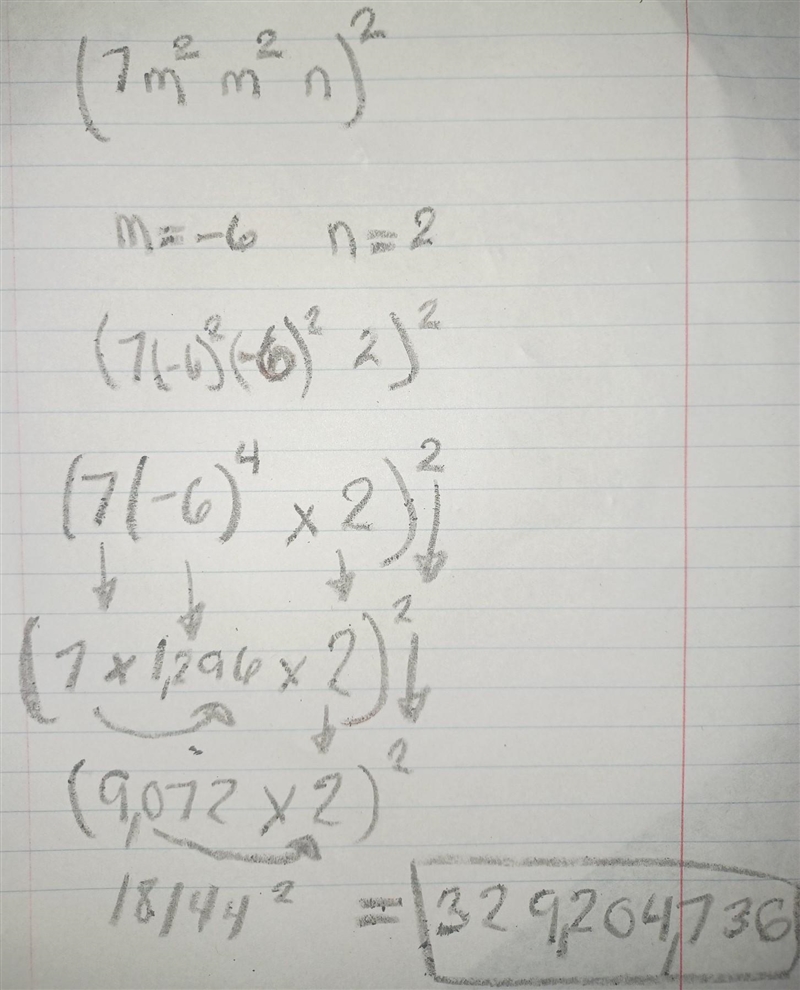 (7m² m² n)²
m=-6 n=2
(7(-6)²(-6)² 2)²
(7(-6)⁴ x 2)²
(7 x 1,296 x 2)²
(9,072 x 2)²
18144² = 329,204,736